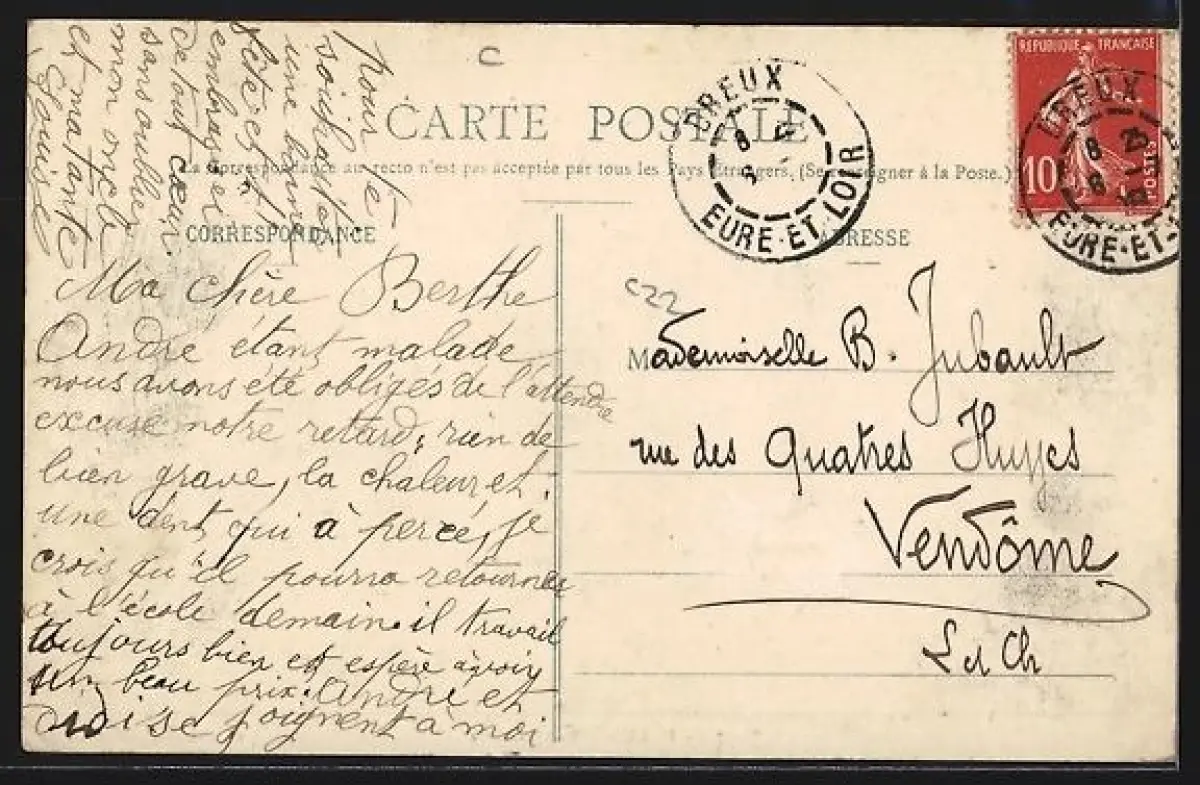 C
CARTE POSTALE
La Correspondance au recto n'est pas acceptée par tous les Pays Etrangers. (Se renseigner à la Poste.)
CORRESPONDANCE
Ma chère Berthe
André étant malade
nous avons été obligés de l'attendre
excuse notre retard, rien de
bien grave, la chaleur et
une dent qui à percée, je
crois qu'il pourra retourner
à l'école demain. il travail
toujours bien et espère avoir
un beau prix. André et
se joignent à moi
pour te
souhaiter
une bonne
fête et t'
embrasser
de tout cœur.
sans oublier
mon oncle
et ma tante
Louise
ADRESSE
C22
Mademoiselle B. Jubault
rue des Quatres Huyes
Vendôme
L et Ch
DREUX
8
EURE-ET-LOIR
REPUBLIQUE FRANÇAISE
10
POSTES
DREUX
8
EURE-ET-L